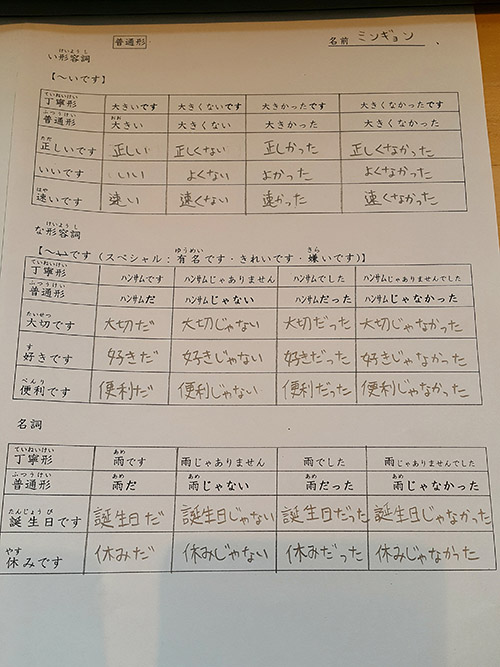 普通形
名前 ミンギョン
けいようし
い形容詞
【～いです】
ていねいけい
丁寧形 大きいです 大きくないです 大きかったです 大きくなかったです
ふつうけい おお
普通形 大きい 大きくない 大きかった 大きくなかった
ただ
正しいです 正しい 正しくない 正しかった 正しくなかった
いいです いい よくない よかった よくなかった
はや
速いです 速い 速くない 速かった 速くなかった
けいようし
な形容詞 ゆうめい きら
【～いです（スペシャル：有名です・きれいです・嫌いです）】
ていねいけい
丁寧形 ハンサムです ハンサムじゃありません ハンサムでした ハンサムじゃありませんでした
ふつうけい
普通形 ハンサムだ ハンサムじゃない ハンサムだった ハンサムじゃなかった
たいせつ
大切です 大切だ 大切じゃない 大切だった 大切じゃなかった
す
好きです 好きだ 好きじゃない 好きだった 好きじゃなかった
べんり
便利です 便利だ 便利じゃない 便利だった 便利じゃなかった
名詞
ていねいけい あめ あめ あめ あめ
丁寧形 雨です 雨じゃありません 雨でした 雨じゃありませんでした
ふつうけい あめ あめ あめ あめ
普通形 雨だ 雨じゃない 雨だった 雨じゃなかった
たんじょうび
誕生日です 誕生日だ 誕生日じゃない 誕生日だった 誕生日じゃなかった
やす
休みです 休みだ 休みじゃない 休みだった 休みじゃなかった